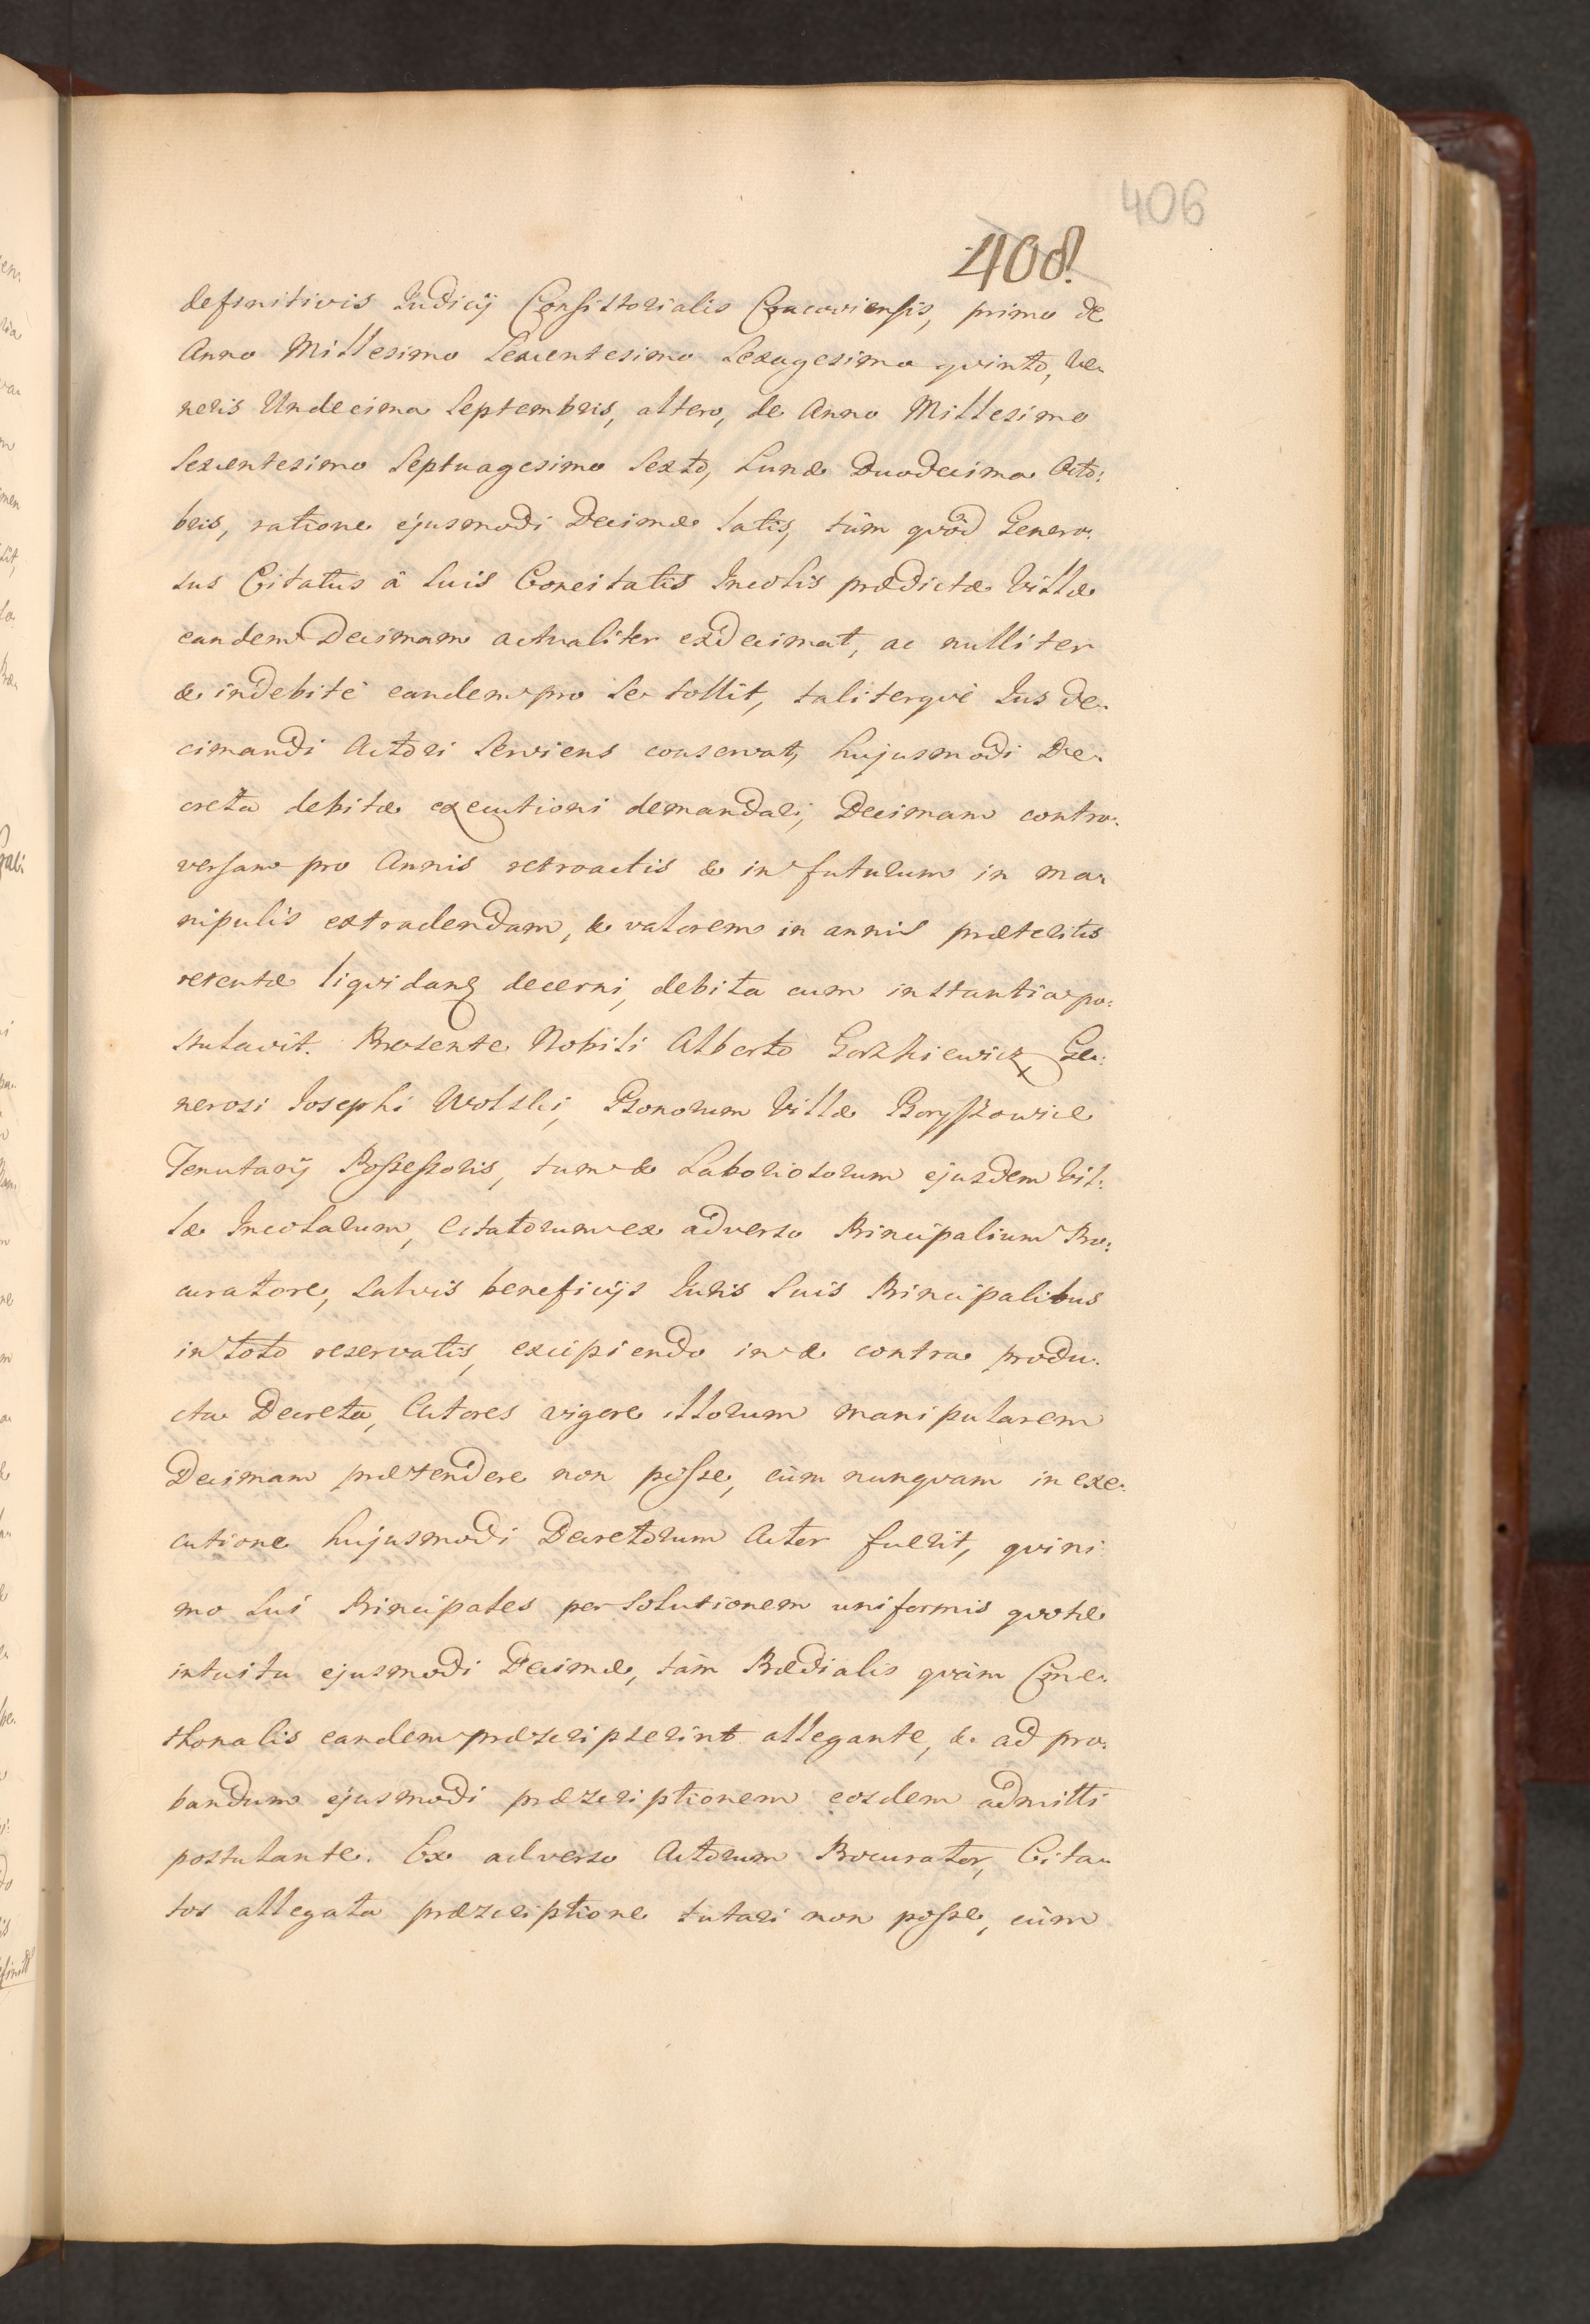 406
408
definitivis Iudicij Consistorialis Cracoviensis, primo de
Anno Millesimo Sexcentesimo Sexagesimo qvinto, Ve-
neris Undecima Septembris, altero, de Anno Millesimo
Sexcentesimo Septuagesimo Sexto, Lunæ Duodecima Octo:
bris, ratione ejusmodi Decimæ latis, tùm qvòd Genero:
sus Citatus â suis Concitatis Incolis prædictæ Villæ
eandem Decimam actualiter exdecimat, ac nulliter
& indebitè eandem pro se tollit, taliterqvè Ius de-
cimandi Actori serviens conservat, hujusmodi De-
creta debitæ executioni demandari, Decimam contro-
versam pro Annis retroactis & in futurum in ma-
nipulis extradendam, & valorem in annis præteritis
retentæ liqvidanq decerni, debita cum instantia po:
stulavit. Præsente Nobili Alberto Gorzkiewicz, Ge:
nerosi Iosephi Wolski, Bonorum Villæ Boryszowice
Tenutarij Possessoris, tum & Laboriosorum ejusdem Vil:
læ Incolarum, Citatorum ex adverso Principalium Pro:
curatore, salvis beneficijs Iuris suis Principalibus
in toto reservatis, excipiendo in & contra produ-
cta Decreta, Actores vigore illorum manipularem
Decimam prætendere non posse, cùm nunqvam in exe-
cutione hujusmodi Decretorum Actor fuerit, qvini
mo sui Principales per solutionem uniformis qvotæ
intuitu ejusmodi Decimæ, tàm Prædialis qvàm Cme-
thonalis eandem præscripserint allegante, & ad pro-
bandum ejusmodi præscriptionem eosdem admitti
postulante. Ex adverso Actorum Procurator, Cita-
tos allegata præscriptione tutari non posse, cùm